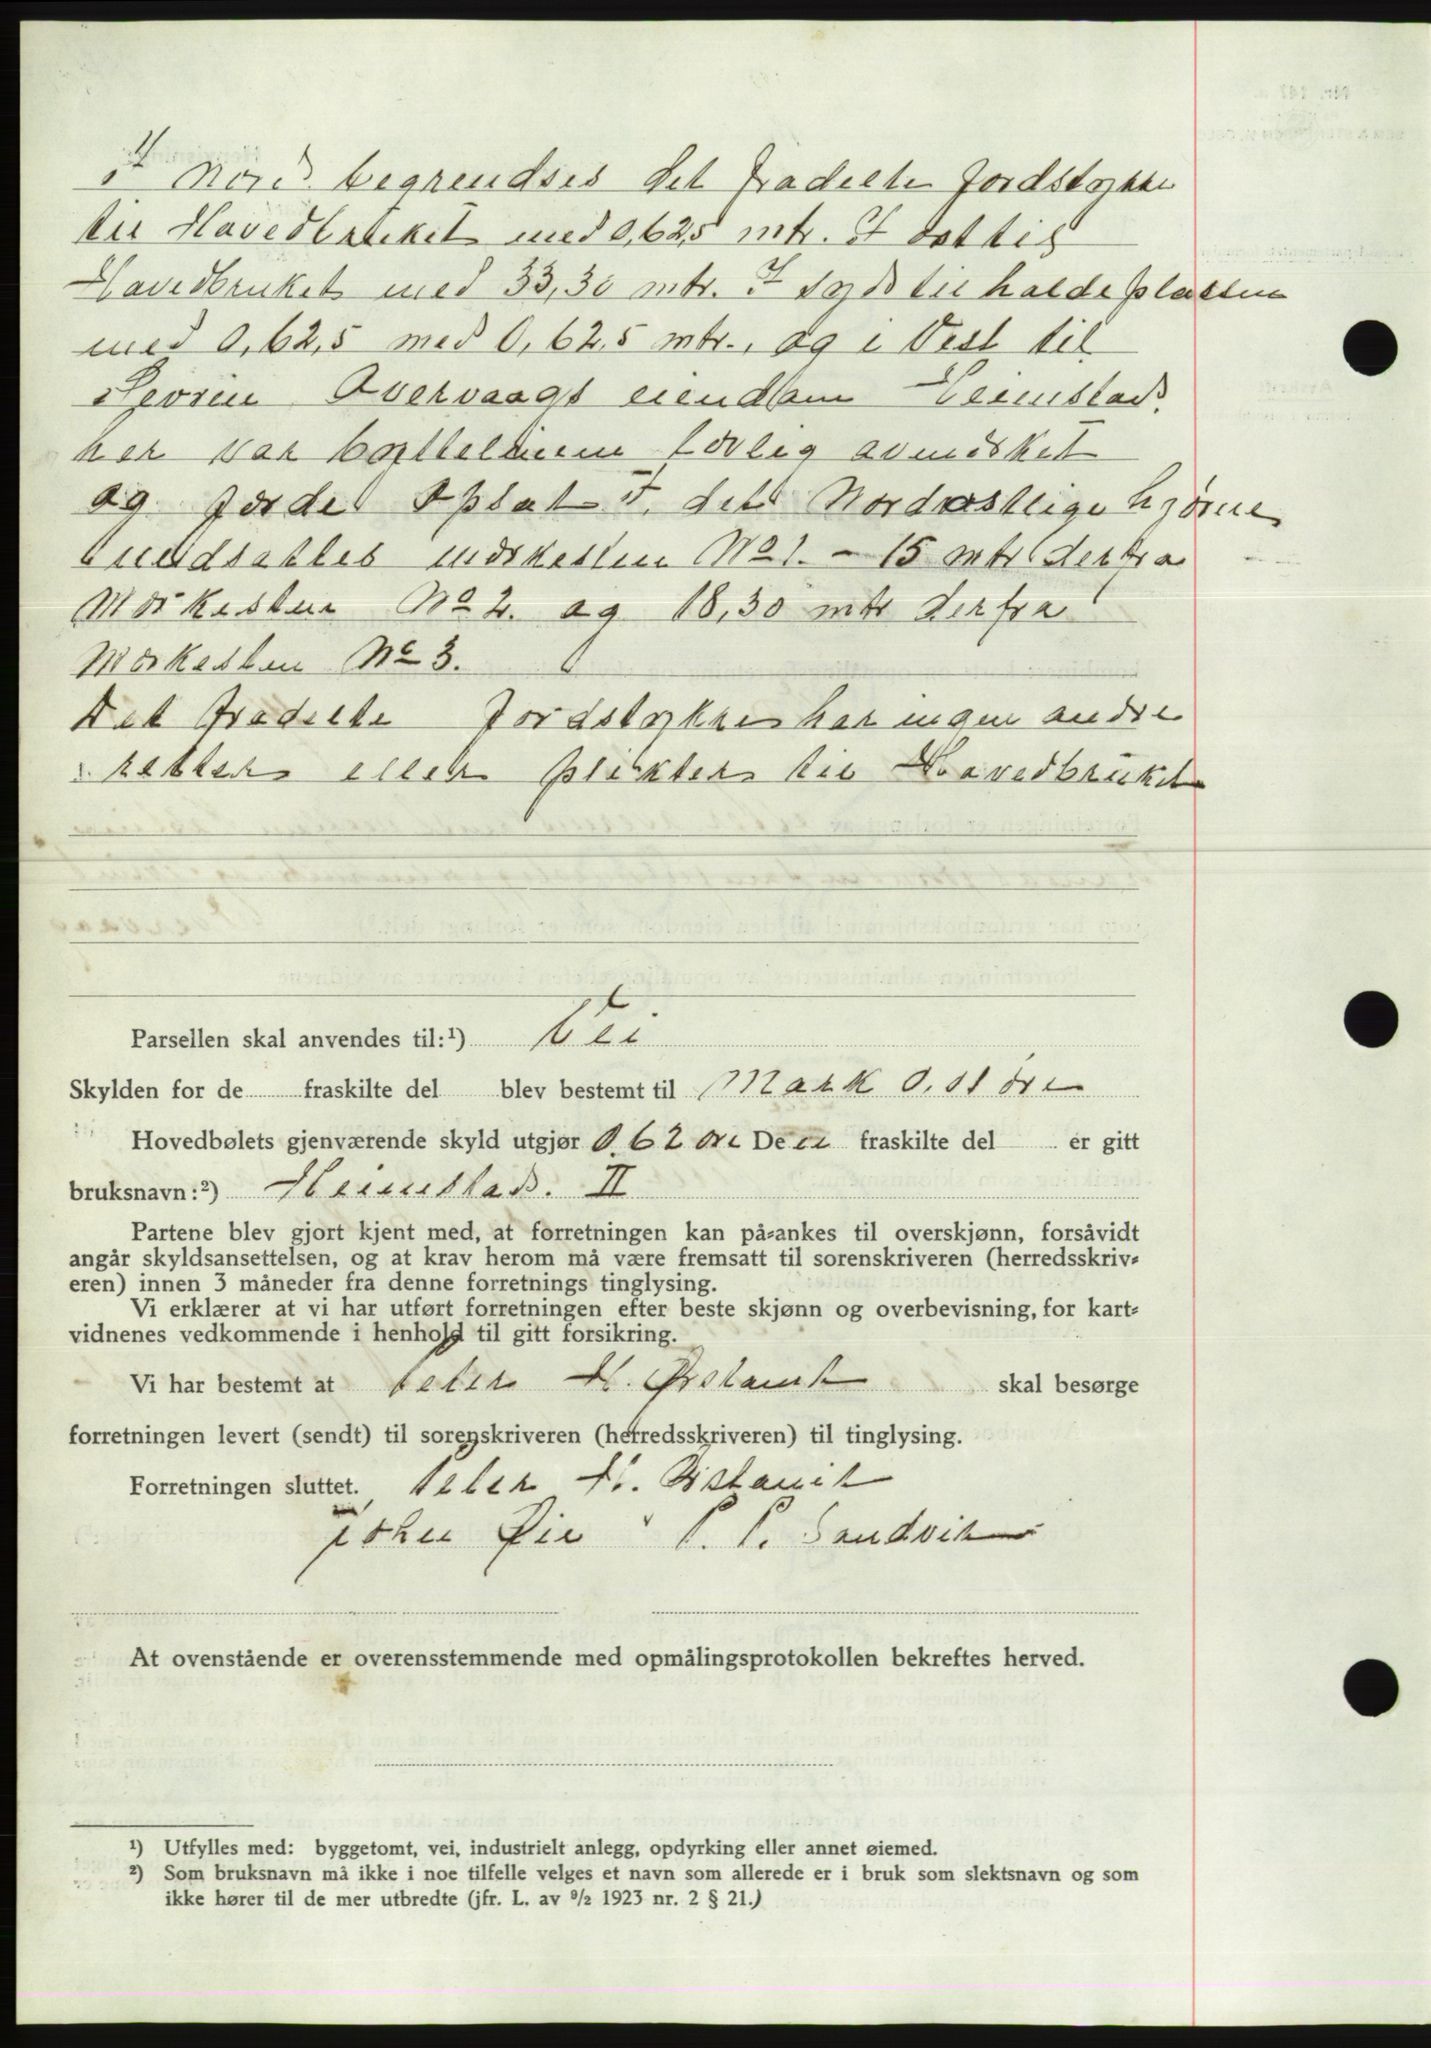 I Nord begrendses det fradelte Jordstykke
til Hovedbruket med 0,62,5 mtr. I øst til
Hovedbruket med 33,30 mtr. I syd til holdeplassen
med 0,62,5 med 0,62,5 mtr., og i Vest til
Sevrin Overvaags eiendom Heimstad.
her var byttelinene lovlig avmerket
og Jorde oplat I. det Nordøstlige hjørne
nedsattes merkesten No 1. - 15 mtr derfra
Merkesten No 2. og 18,30 mtr derfra
Merkesten No 3.
Det fradelte Jordstykke har ingen andre
retter eller plikter til Hovedbruket
Parsellen skal anvendes til:¹) Vei
Skylden for de fraskilte del blev bestemt til Mark 0.01 øre
Hovedbølets gjenværende skyld utgjør 0.62 øre Den fraskilte del er gitt
bruksnavn:²) Heimstad. II
Partene blev gjort kjent med, at forretningen kan på-ankes til overskjønn, forsåvidt
angår skyldsansettelsen, og at krav herom må være fremsatt til sorenskriveren (herredsskriv-
eren) innen 3 måneder fra denne forretnings tinglysing.
Vi erklærer at vi har utført forretningen efter beste skjønn og overbevisning, for kart-
vidnenes vedkommende i henhold til gitt forsikring.
Vi har bestemt at Peter H. Ørstavik skal besørge
forretningen levert (sendt) til sorenskriveren (herredsskriveren) til tinglysing.
Forretningen sluttet. Peter H. Ørstavik
Johen Øie P. P. Sandvik
At ovenstående er overensstemmende med opmålingsprotokollen bekreftes herved.
¹) Utfylles med: byggetomt, vei, industrielt anlegg, opdyrking eller annet øiemed.
²) Som bruksnavn må ikke i noe tilfelle velges et navn som allerede er i bruk som slektsnavn og som
ikke hører til de mer utbredte (jfr. L. av ⁹/₂ 1923 nr. 2 § 21.)